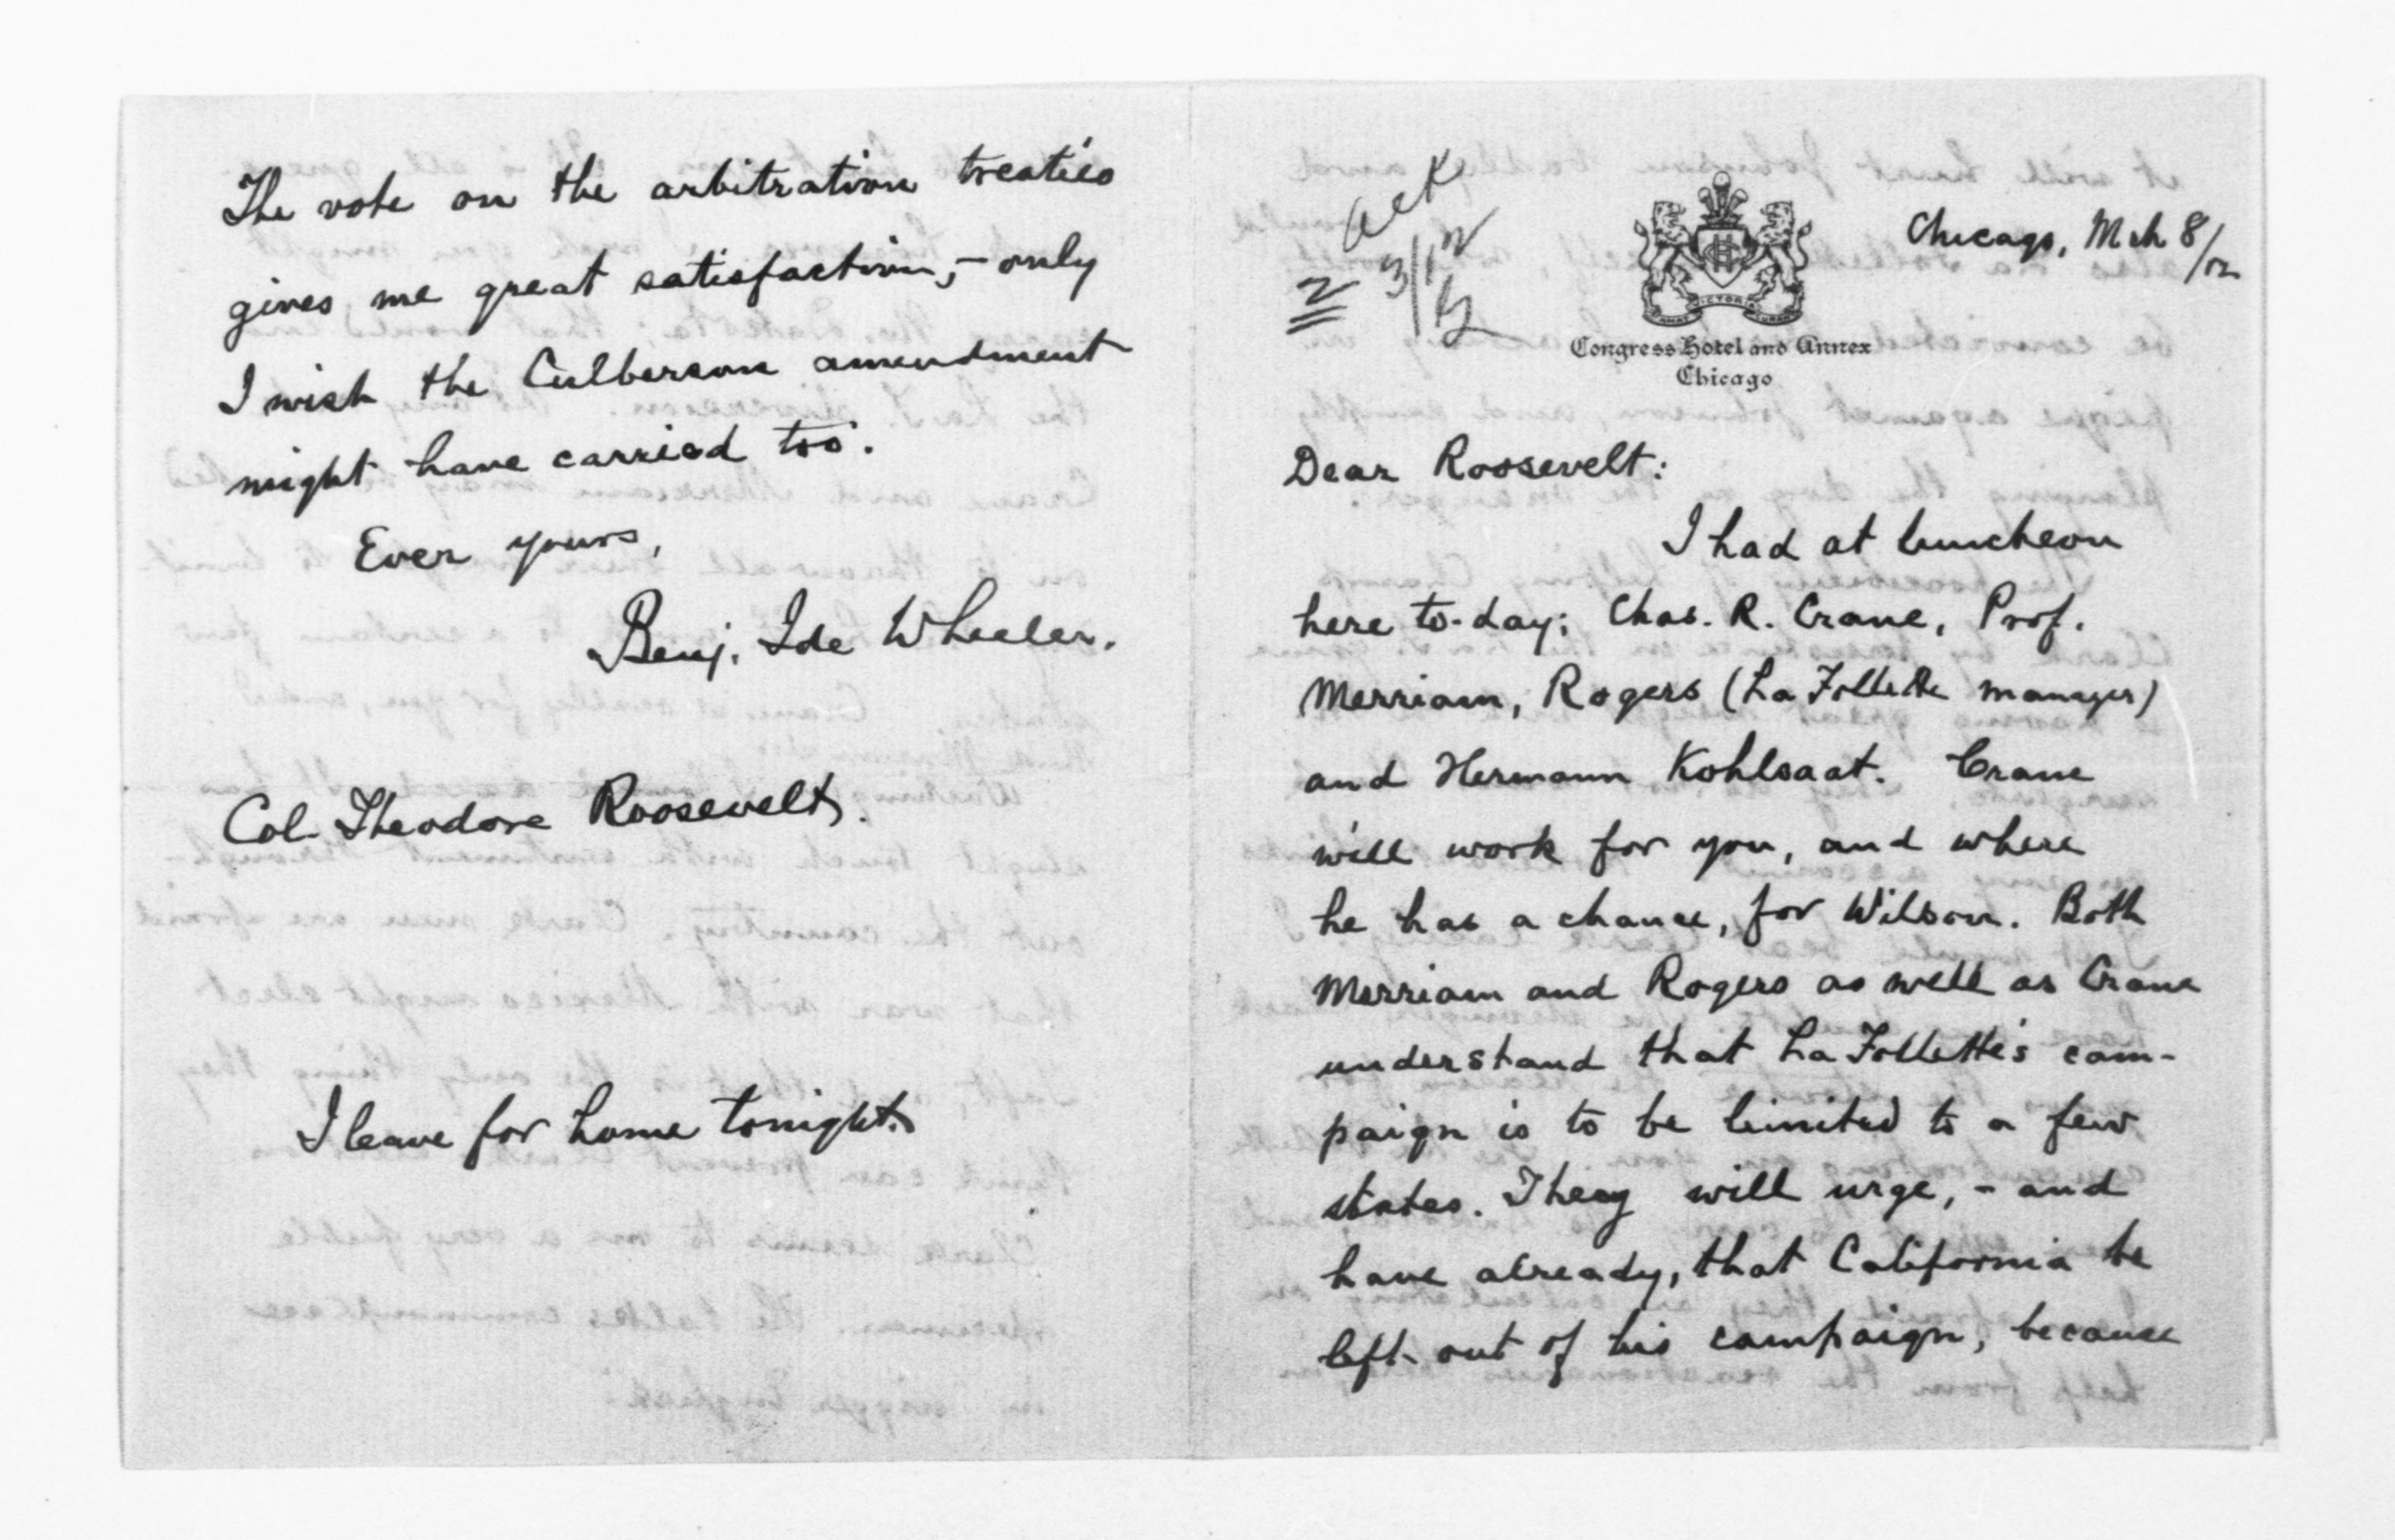 The vote on the arbitration treaties
gives me great satisfaction, – only
I wish the Culberson amendment
might have carried too.
Ever yours,
Benj. Ide Wheeler.
Col. Theodore Roosevelt.
I leave for home tonight.
ack
3/12
2
Chicago, Mch 8/12
VICTORIA
Congress Hotel and Annex
Chicago
Dear Roosevelt:
I had at luncheon
here to-day: Chas. R. Crane, Prof.
Merriam, Rogers (La Follette manager)
and Hermann Kohlsaat. Crane
will work for you, and where
he has a chance, for Wilson. Both
Merriam and Rogers as well as Crane
understand that La Follette's cam-
paign is to be limited to a few
states. They will urge, – and
have already, that California be
left out of his campaign, because